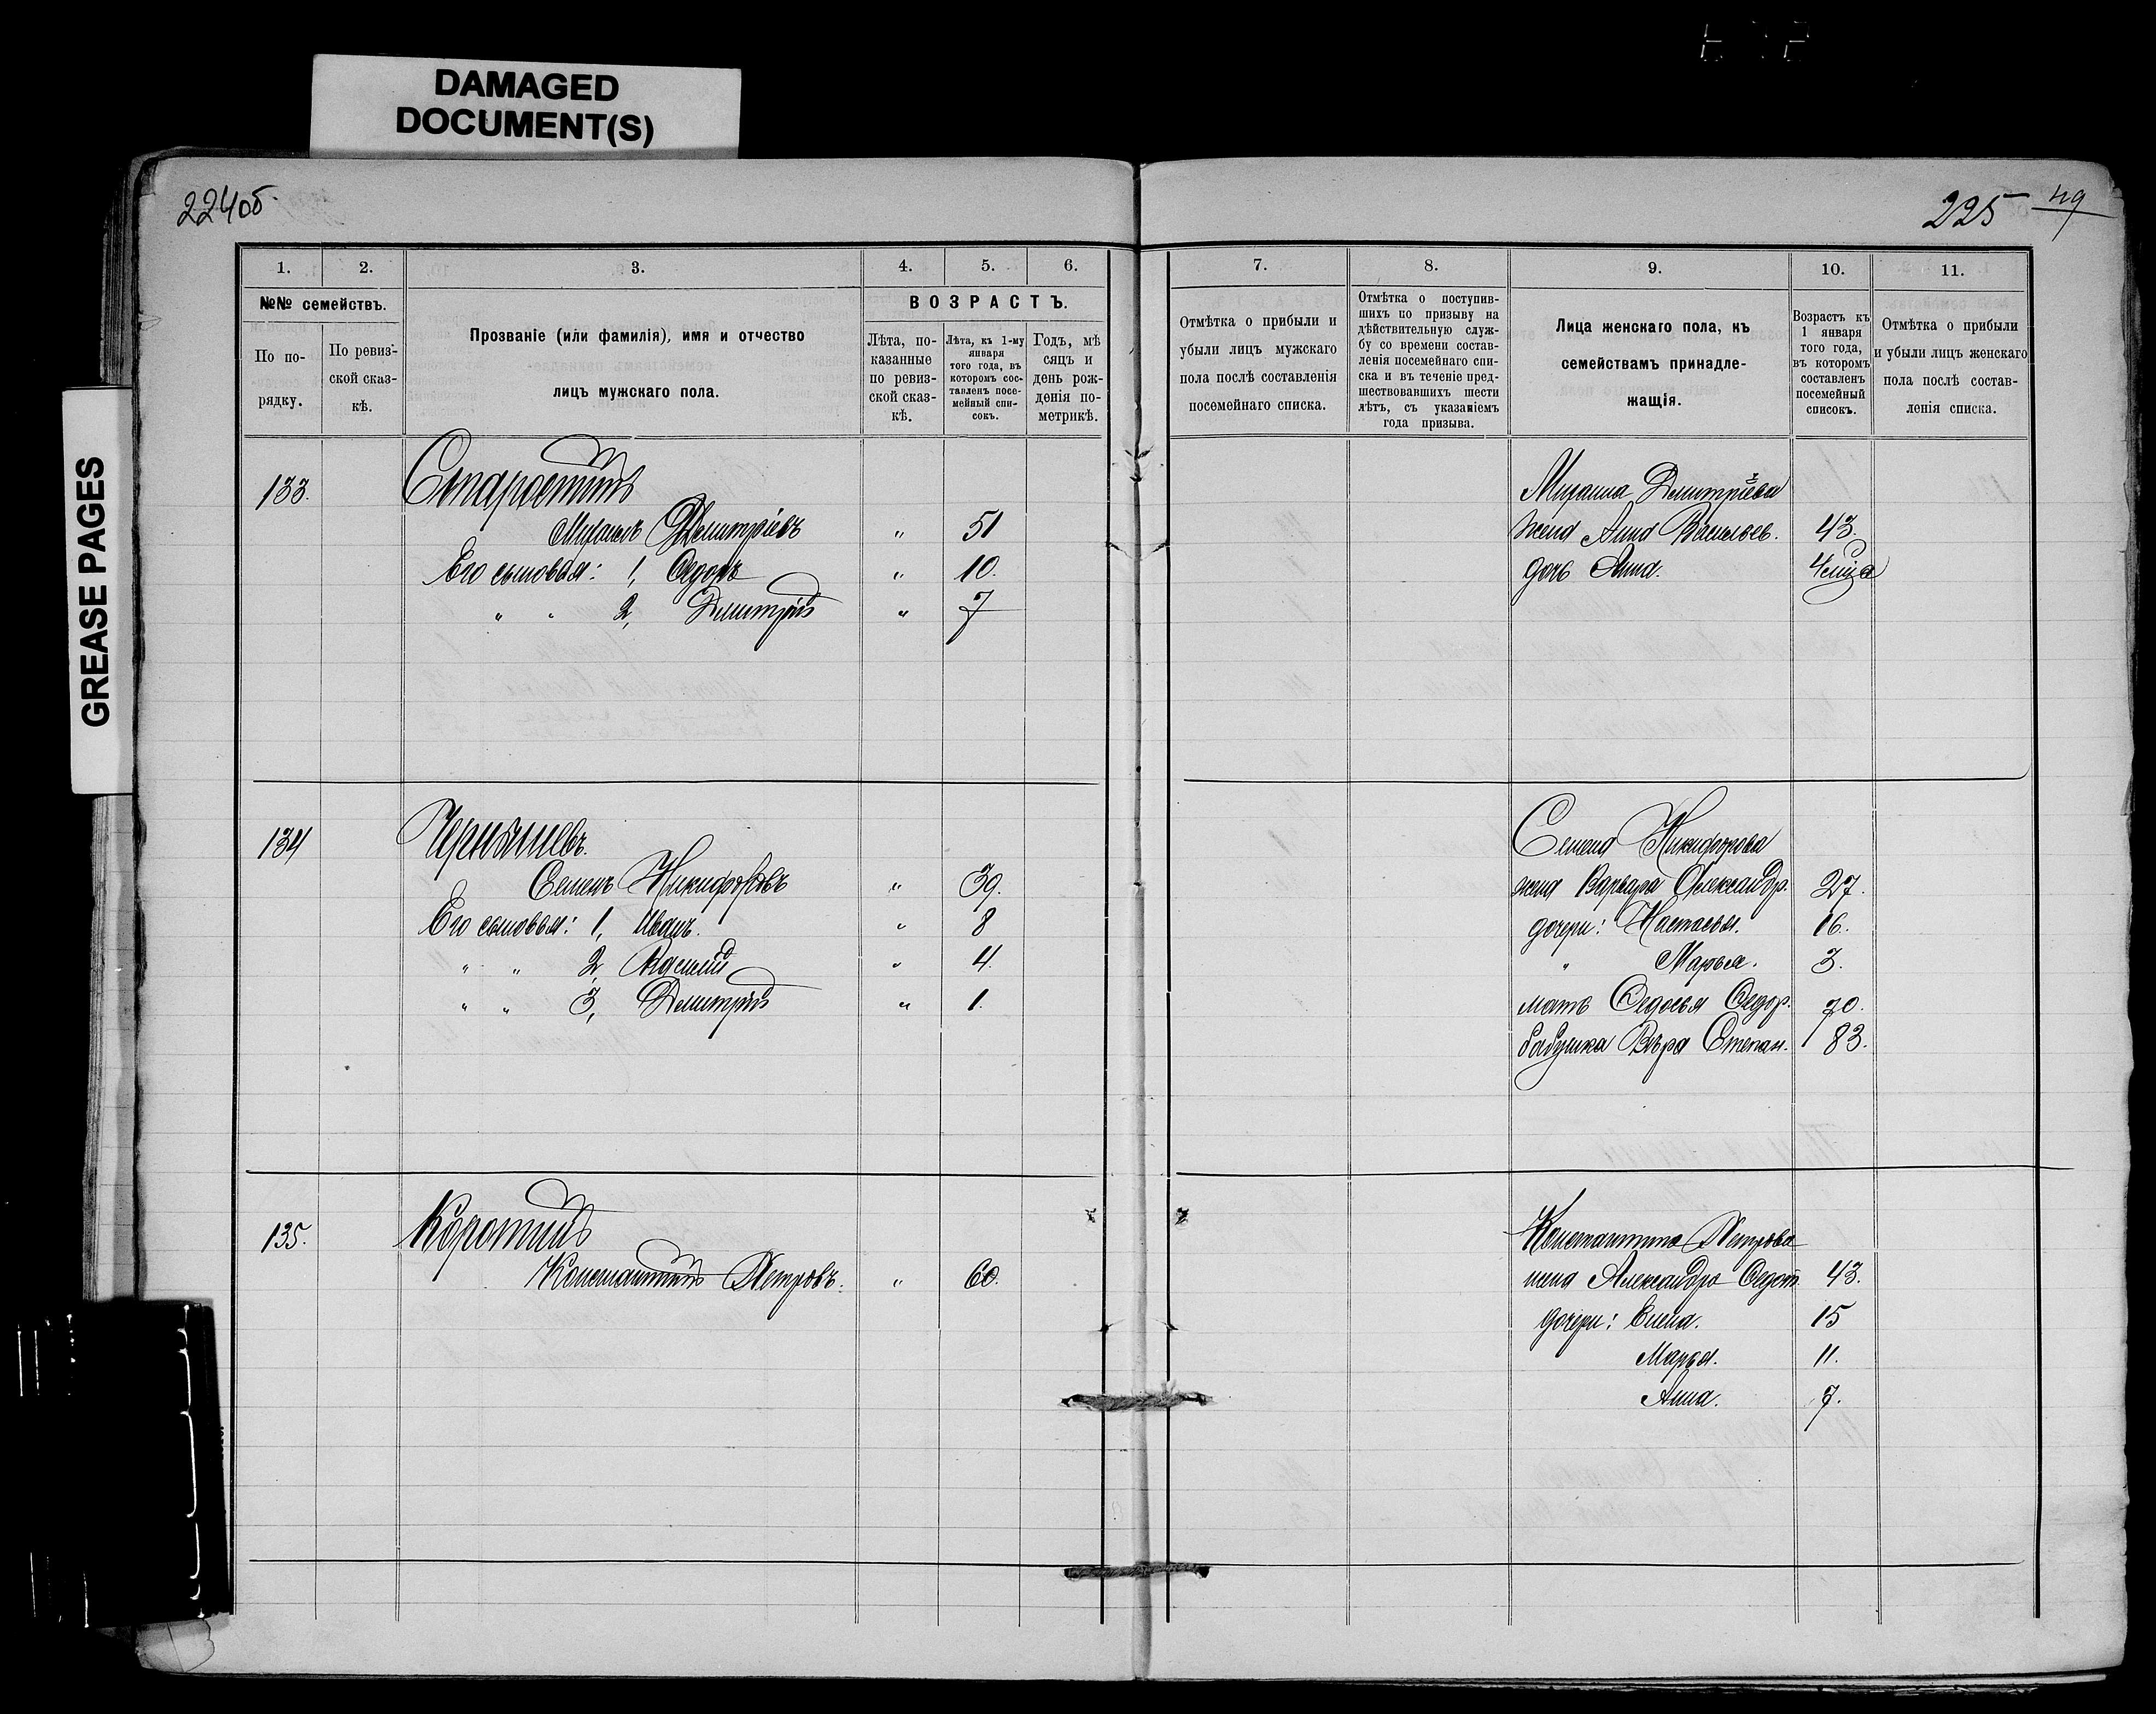 DAMAGED
DOCUMENT(S)
GREASE PAGES
224об.
225 49
1. 2. 3. 4. 5. 6.
№№ семействъ.
По по-
рядку.
По ревиз-
ской сказ-
кѣ.
Прозваніе (или фамилія), имя и отчество
лицъ мужскаго пола.
ВОЗРАСТЪ.
Лѣта, по-
казанные
по ревиз-
ской сказ-
кѣ.
Лѣта, къ 1-му
января
того года, въ
которомъ сос-
тавленъ посе-
мейный спи-
сокъ.
Годъ, мѣ
сяцъ и
день рож-
денія по-
метрикѣ.
133. Старостинъ
Михаилъ Дмитріевъ " 51
Его сыновья: 1, Ѳедоръ " 10.
" " 2, Дмитрій " 7
134 Чернышевъ.
Семенъ Никифоровъ " 39.
Его сыновья: 1, Иванъ. " 8
" " 2, Василій " 4.
" " 3, Дмитрій " 1.
135. Коротинъ
Константинъ Петровъ. " 60.
7. 8. 9. 10. 11.
Отмѣтка о прибыли и
убыли лицъ мужскаго
пола послѣ составленія
посемейнаго списка.
Отмѣтка о поступив-
шихъ по призыву на
дѣйствительную служ-
бу со времени состав-
ленія посемейнаго спи-
ска и въ теченіе пред-
шествовавшихъ шести
лѣтъ, съ указаніемъ
года призыва.
Лица женскаго пола, къ
семействамъ принадле-
жащія.
Возрастъ къ
1 января
того года,
въ которомъ
составленъ
посемейный
списокъ.
Отмѣтка о прибыли
и убыли лицъ женскаго
пола послѣ состав-
ленія списка.
Михаила Дмитріева
жена Анна Васильев. 43.
дочь Анна. 4
Семена Никифорова
жена Варвара Александр. 27.
дочери: Настасья. 16.
" Марья. 3.
мать Ѳедосья Ѳедор. 70.
бабушка Вѣра Степан. 83.
Константина Петрова
жена Александра Ѳедот. 43.
дочери: Елена. 15
Марья. 11.
Анна. 7.